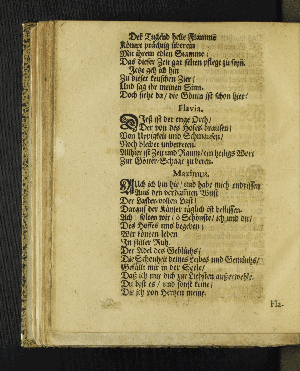 Der Tugend helle Flammen
Könnt prächtig
Mit ihrem edlen Stamme;
Das dieser Zeit gar selten pflegt zu seyn.
Jetzt geh ich hin
Zu dieser keuschen Zier/
Und sag ihr meinen Sinn.
Doch siehe da/ die Göttin ist schon hier/
Flavia.
Diß ist der enge Orth/
Der von des Hofes brausen/
Von Uppigkeit und
Noch bleibet unbetreten.
Allhier ist Zeit und Raum/ ein heiligs Wort
Zur Götter-Schaar zu beten.
Maximus.
Auch ich bin hie/ und habe mich entrissen
Aus den verdamten Wust
Der Laster-vollen Lust/
Darauf der Käyser täglich ist beflissen.
Ach solten wir/ o Schönste/ ich und du/
Des Hoffes uns begeben;
Wir können leben
In stiller Ruh.
Der Adel des Geblühts/
Die Schönheit deines Leibes und Gemühts/
Gefällt mir in der Seele/
Daß ich mir dich zur Liebsten außerwehle.
Du bist es/ und sonst keine;
Die ich von Hertzen meine.
Fla-